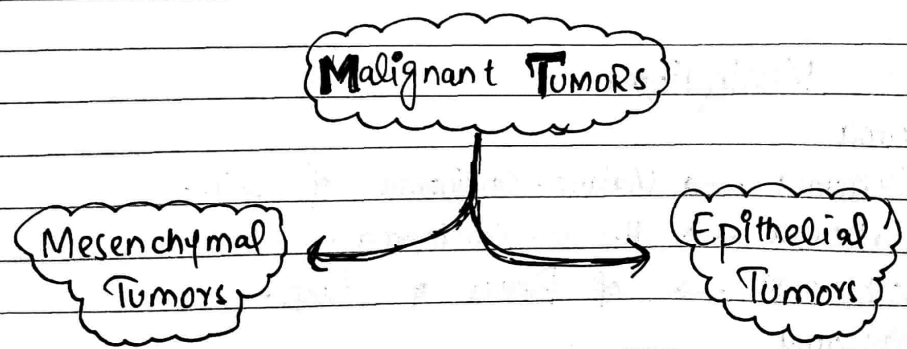 Malignant TUMORS
Mesenchymal
Tumors
Epithelial
Tumors